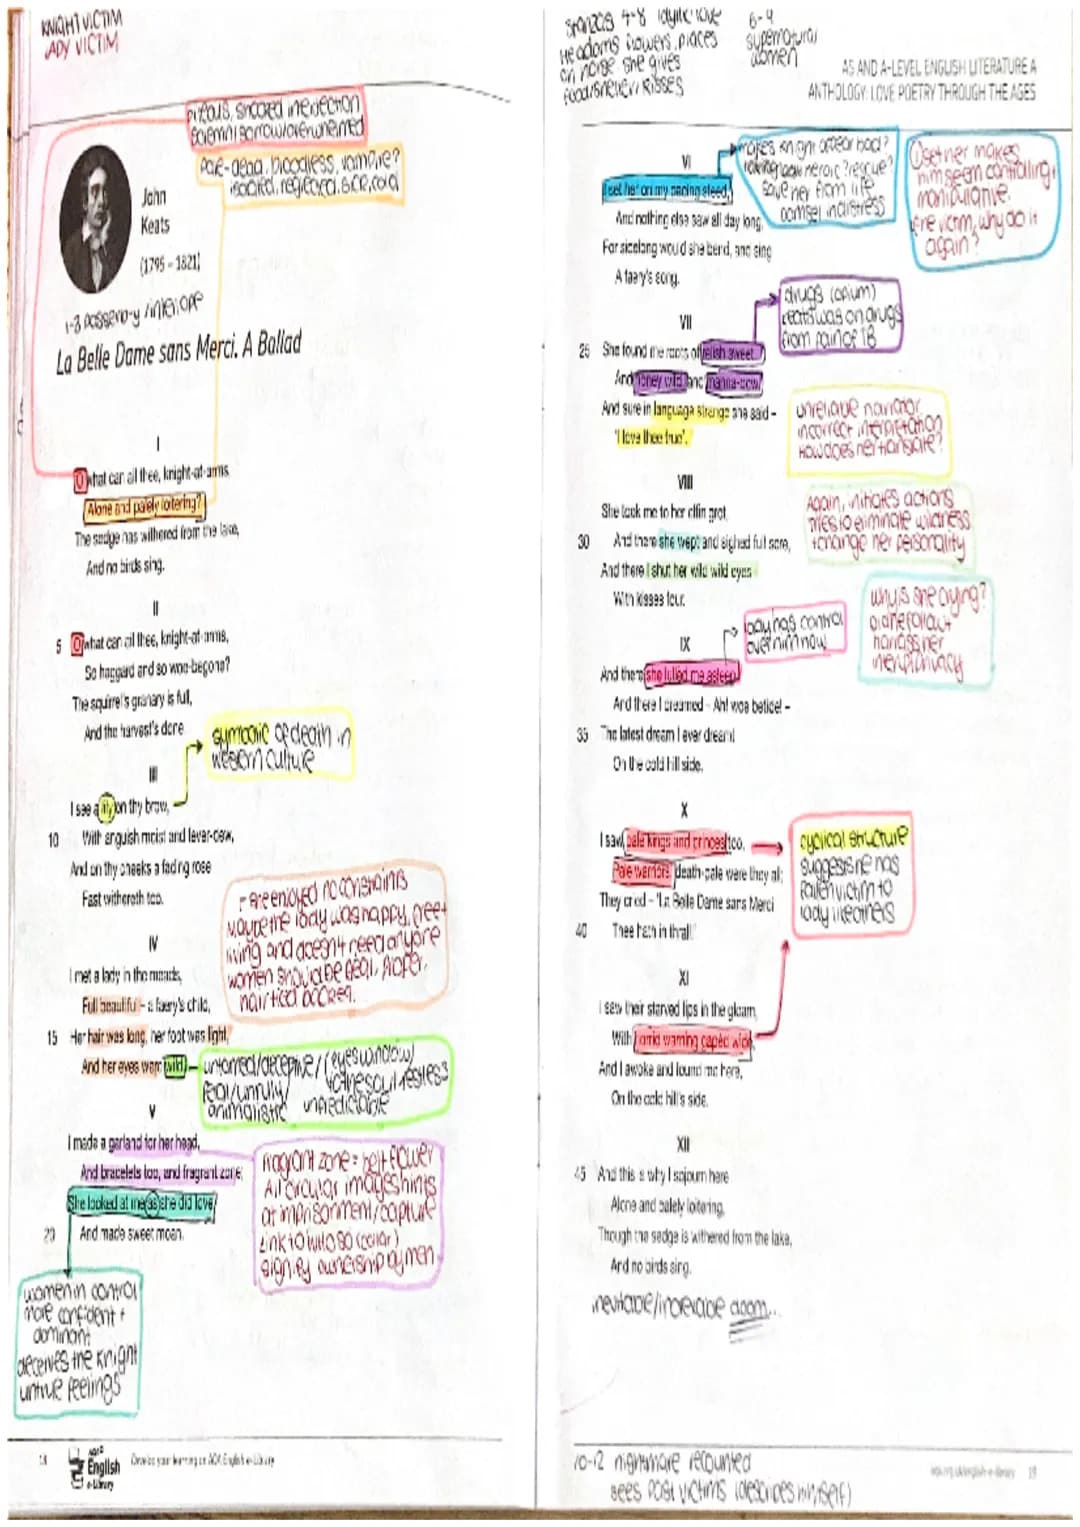 KNIGHT VICTIM
LADY VICTIM
piteous, shocked interjection
solemn/sorrow/overwhelmed
Pale-dead, bloodless, vampire?
isolated, neglected, sick, cold
John
Keats
(1795 – 1821)
1-3 passerby /interlope
La Belle Dame sans Merci. A Ballad
I
O what can ail thee, knight-at-arms,
Alone and palely loitering?
The sedge has withered from the lake,
And no birds sing.
II
5 O what can ail thee, knight-at-arms,
So haggard and so woe-begone?
The squirrel's granary is full,
And the harvest's done.
symbolic of death in
western culture
III
I see a lily on thy brow,
10 With anguish moist and fever-dew,
And on thy cheeks a fading rose
Fast withereth too.
- She enjoyed no constraints
Maybe the lady was happy, free
living and doesn't need anyone
women should be ideal, proper,
hair tied back etc.
IV
I met a lady in the meads,
Full beautiful – a faery's child,
15 Her hair was long, her foot was light,
And her eyes were wild.
untamed/deceptive/(eyes window/
feral/unruly to the soul restless
animalistic unpredictable
V
I made a garland for her head,
And bracelets too, and fragrant zone;
She looked at me as she did love,
20 And made sweet moan.
fragrant zone = belt flower
All circular images hints
at imprisonment/capture
Link to WHOSO (collar)
signify ownership by men
women in control
more confident +
dominant
deceives the knight
untrue feelings
18
AQA
English
e-Library
Develop your learning on AQA English e-Library
Stanzas 4-8 idyllic love
He adorns flowers, places
on horse she gives
food/shelter/kisses
6-9
supernatural
women
AS AND A-LEVEL ENGLISH LITERATURE A
ANTHOLOGY: LOVE POETRY THROUGH THE AGES
VI
I set her on my pacing steed,
And nothing else saw all day long,
For sidelong would she bend, and sing
A faery's song.
makes knight appear bad?
taking her heroic? rescue?
save her from life
damsel in distress
① set her makes
him seem controlling +
manipulative.
if he victim, why do it
again?
drugs (opium)
Keats was on drugs
from pain of TB
VII
25 She found me roots of relish sweet,
And honey wild, and manna-dew,
And sure in language strange she said –
'I love thee true'.
unreliable narrator
incorrect interpretation
How does he translate?
VIII
She took me to her elfin grot,
30 And there she wept and sighed full sore,
And there I shut her wild wild eyes
With kisses four.
Again, initiates actions
tries to eliminate wildness
+change her personality
why is she crying?
did he follow +
harass her
in her privacy
lady has control
over him now
IX
And there she lulled me asleep
And there I dreamed – Ah! woe betide! –
35 The latest dream I ever dreamt
On the cold hill side.
X
I saw pale kings and princes too,
Pale warriors, death-pale were they all;
They cried – 'La Belle Dame sans Merci
40 Thee hath in thrall!'
cyclical structure
suggests he has
fallen victim to
lady like others
XI
I saw their starved lips in the gloam,
With horrid warning gaped wide,
And I awoke and found me here,
On the cold hill's side.
XII
45 And this is why I sojourn here
Alone and palely loitering,
Though the sedge is withered from the lake,
And no birds sing.
inevitable/inexorable doom...
10-12 nightmare recounted
sees past victims (describes himself)
aqa.org.uk/english-e-library 19